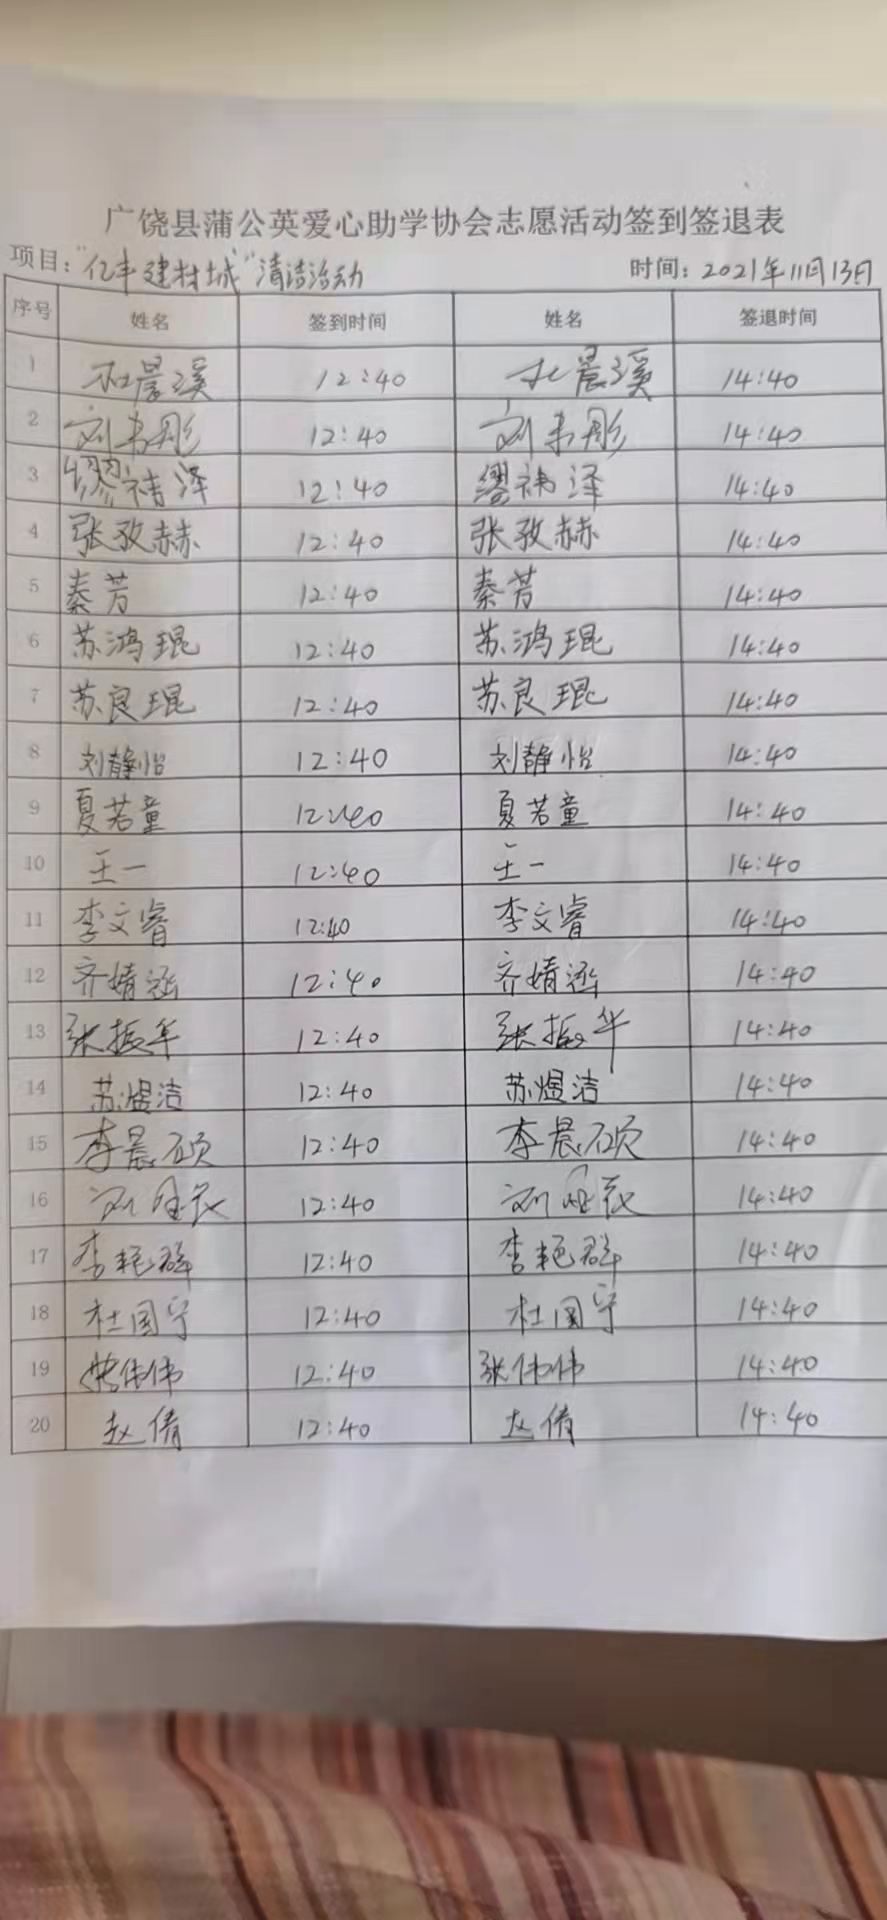 广饶县蒲公英爱心助学协会志愿活动签到签退表
项目："亿丰建材城"清洁活动 时间：2021年11月13日
序号 姓名 签到时间 姓名 签退时间
1 晨溪 12:40 晨溪 14:40
2 刘韦彤 12:40 刘韦彤 14:40
3 缪祎泽 12:40 缪祎泽 14:40
4 张孜赫 12:40 张孜赫 14:40
5 秦芳 12:40 秦芳 14:40
6 苏鸿琨 12:40 苏鸿琨 14:40
7 苏良琨 12:40 苏良琨 14:40
8 刘静怡 12:40 刘静怡 14:40
9 夏若童 12:40 夏若童 14:40
10 王一 12:40 王一 14:40
11 李文睿 12:40 李文睿 14:40
12 齐婧涵 12:40 齐婧涵 14:40
13 张振华 12:40 张振华 14:40
14 苏煜洁 12:40 苏煜洁 14:40
15 李晨硕 12:40 李晨硕 14:40
16 刘 12:40 刘 14:40
17 李艳群 12:40 李艳群 14:40
18 杜国宁 12:40 杜国宁 14:40
19 张伟伟 12:40 张伟伟 14:40
20 赵倩 12:40 赵倩 14:40